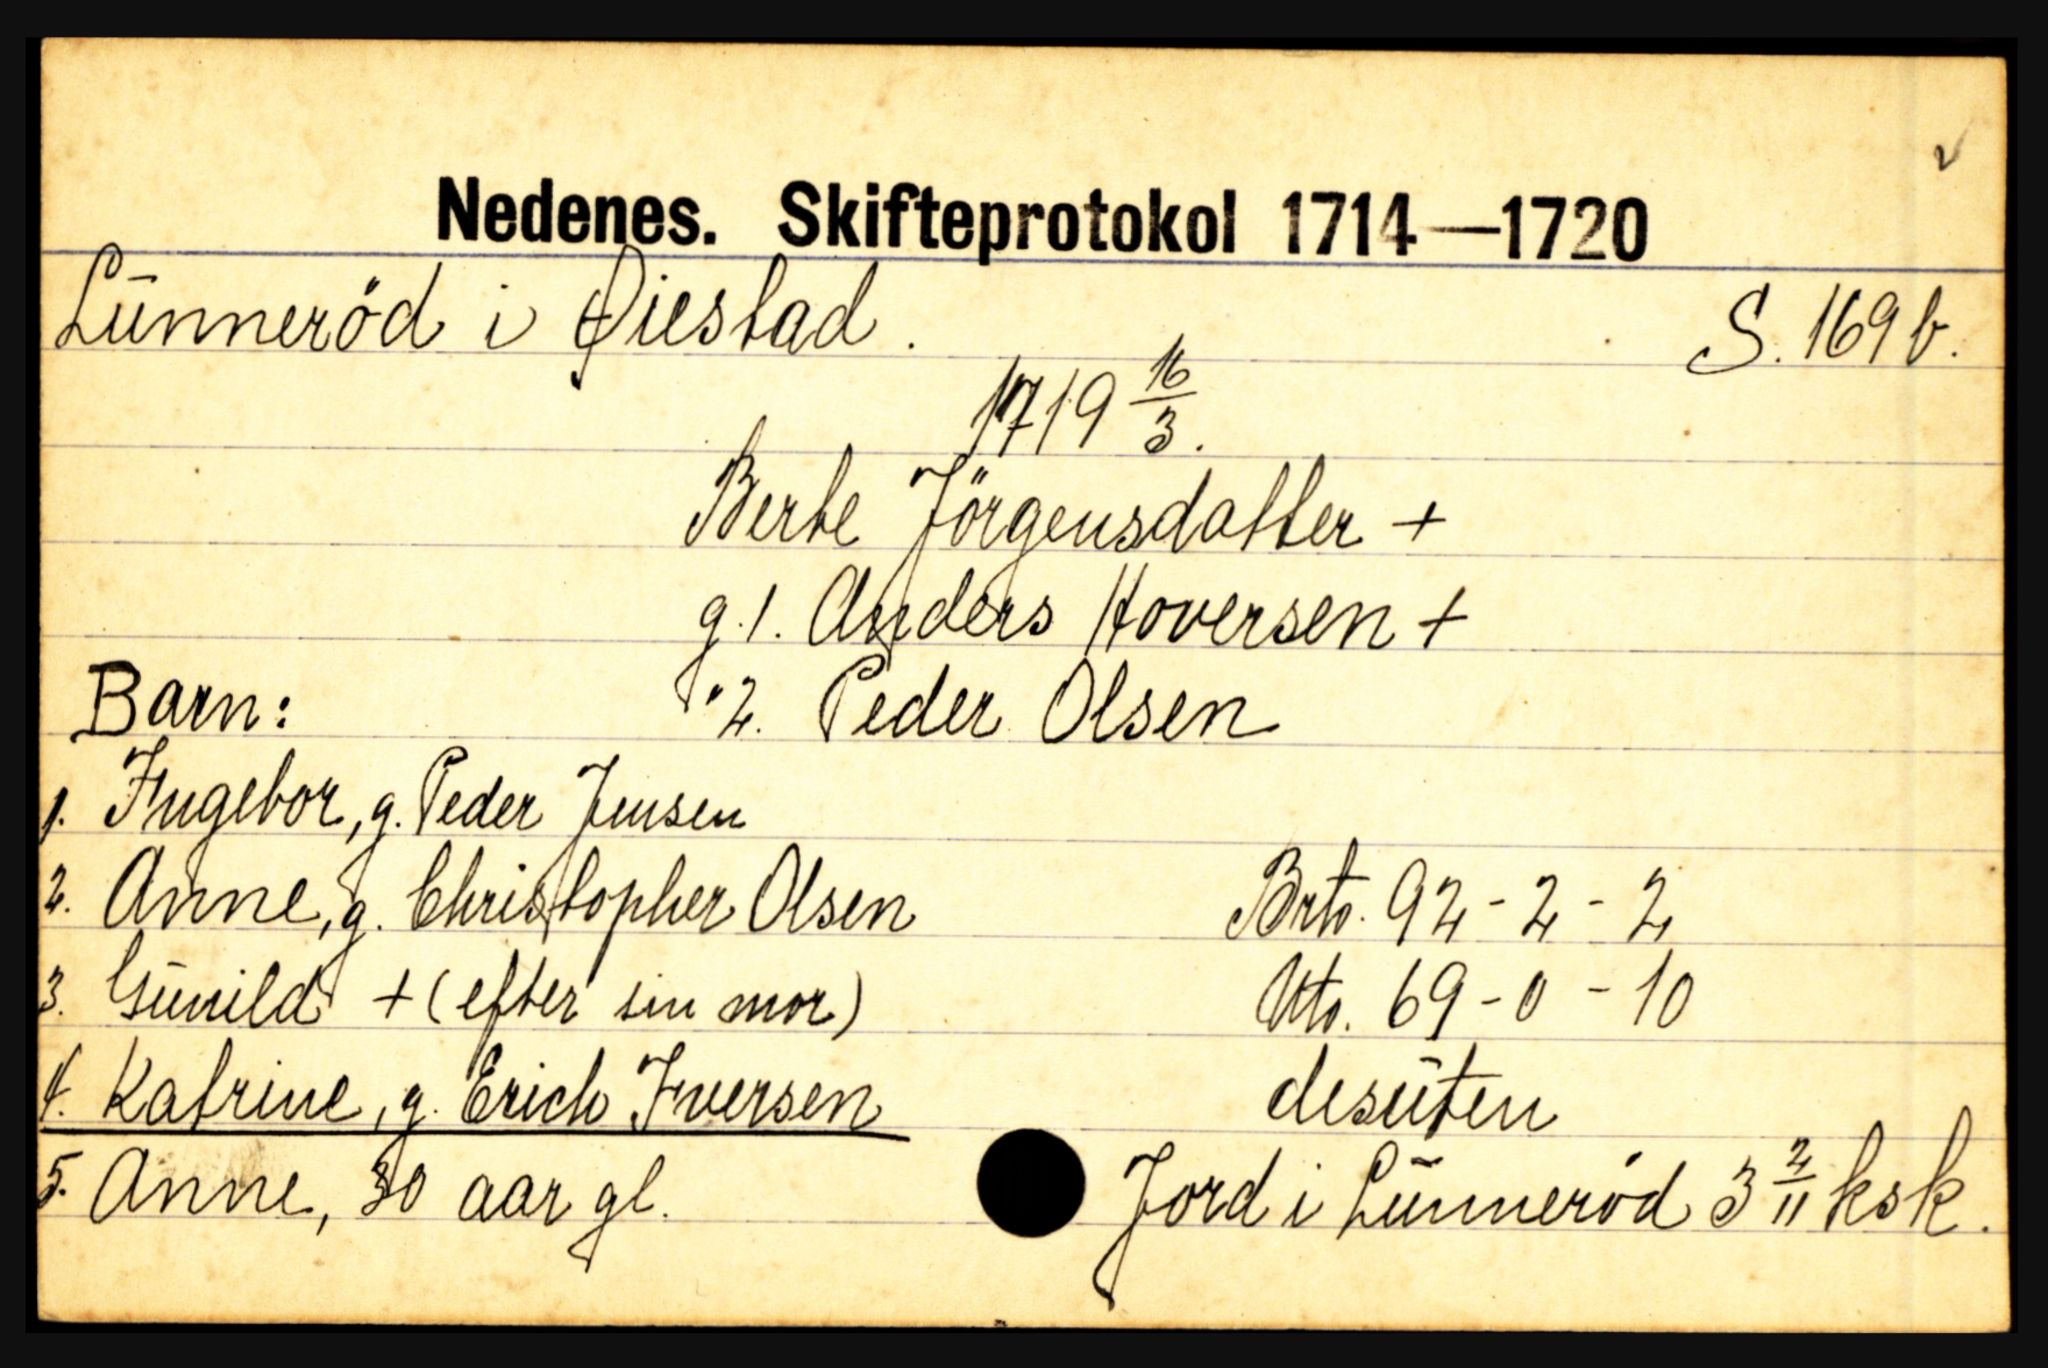 Nedenes. Skifteprotokol 1714—1720
Lūnneröd i Øiestad. S. 169 b.
1719 16/3.
Berte Jörgensdatter +
g. 1. Anders Hoversen +
" 2. Peder Olsen
Barn:
1. Ingebor, g. Peder Jensen
2. Anne, g. Christopher Olsen Brto. 92 - 2 - 2
3. Gūnild + (efter sin mor) Nto. 69 - 0 - 10
4. Katrine, g. Erich Iversen desūten
5. Anne, 30 aar gl. Jord i Lūnneröd 3 2/11 ksk.